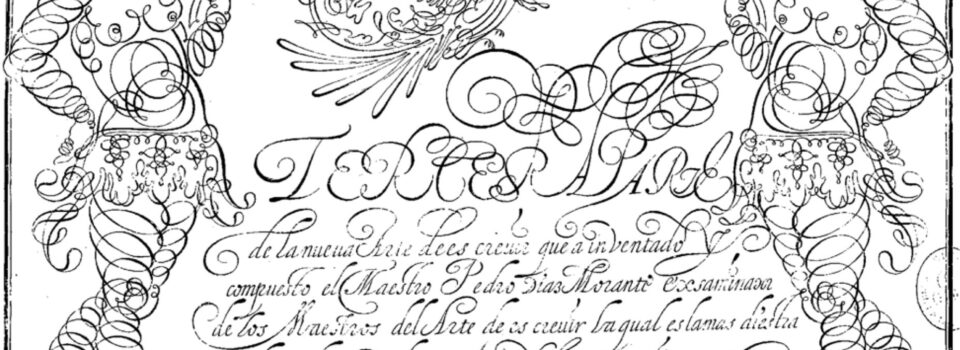 TERCERA PARTE
de la nueua Arte de es creuir que a inventado Y
compuesto el Maestro Pedro Diaz Morante exsaminador
de los Maestros del Arte de es creuir la qual es la mas diestra